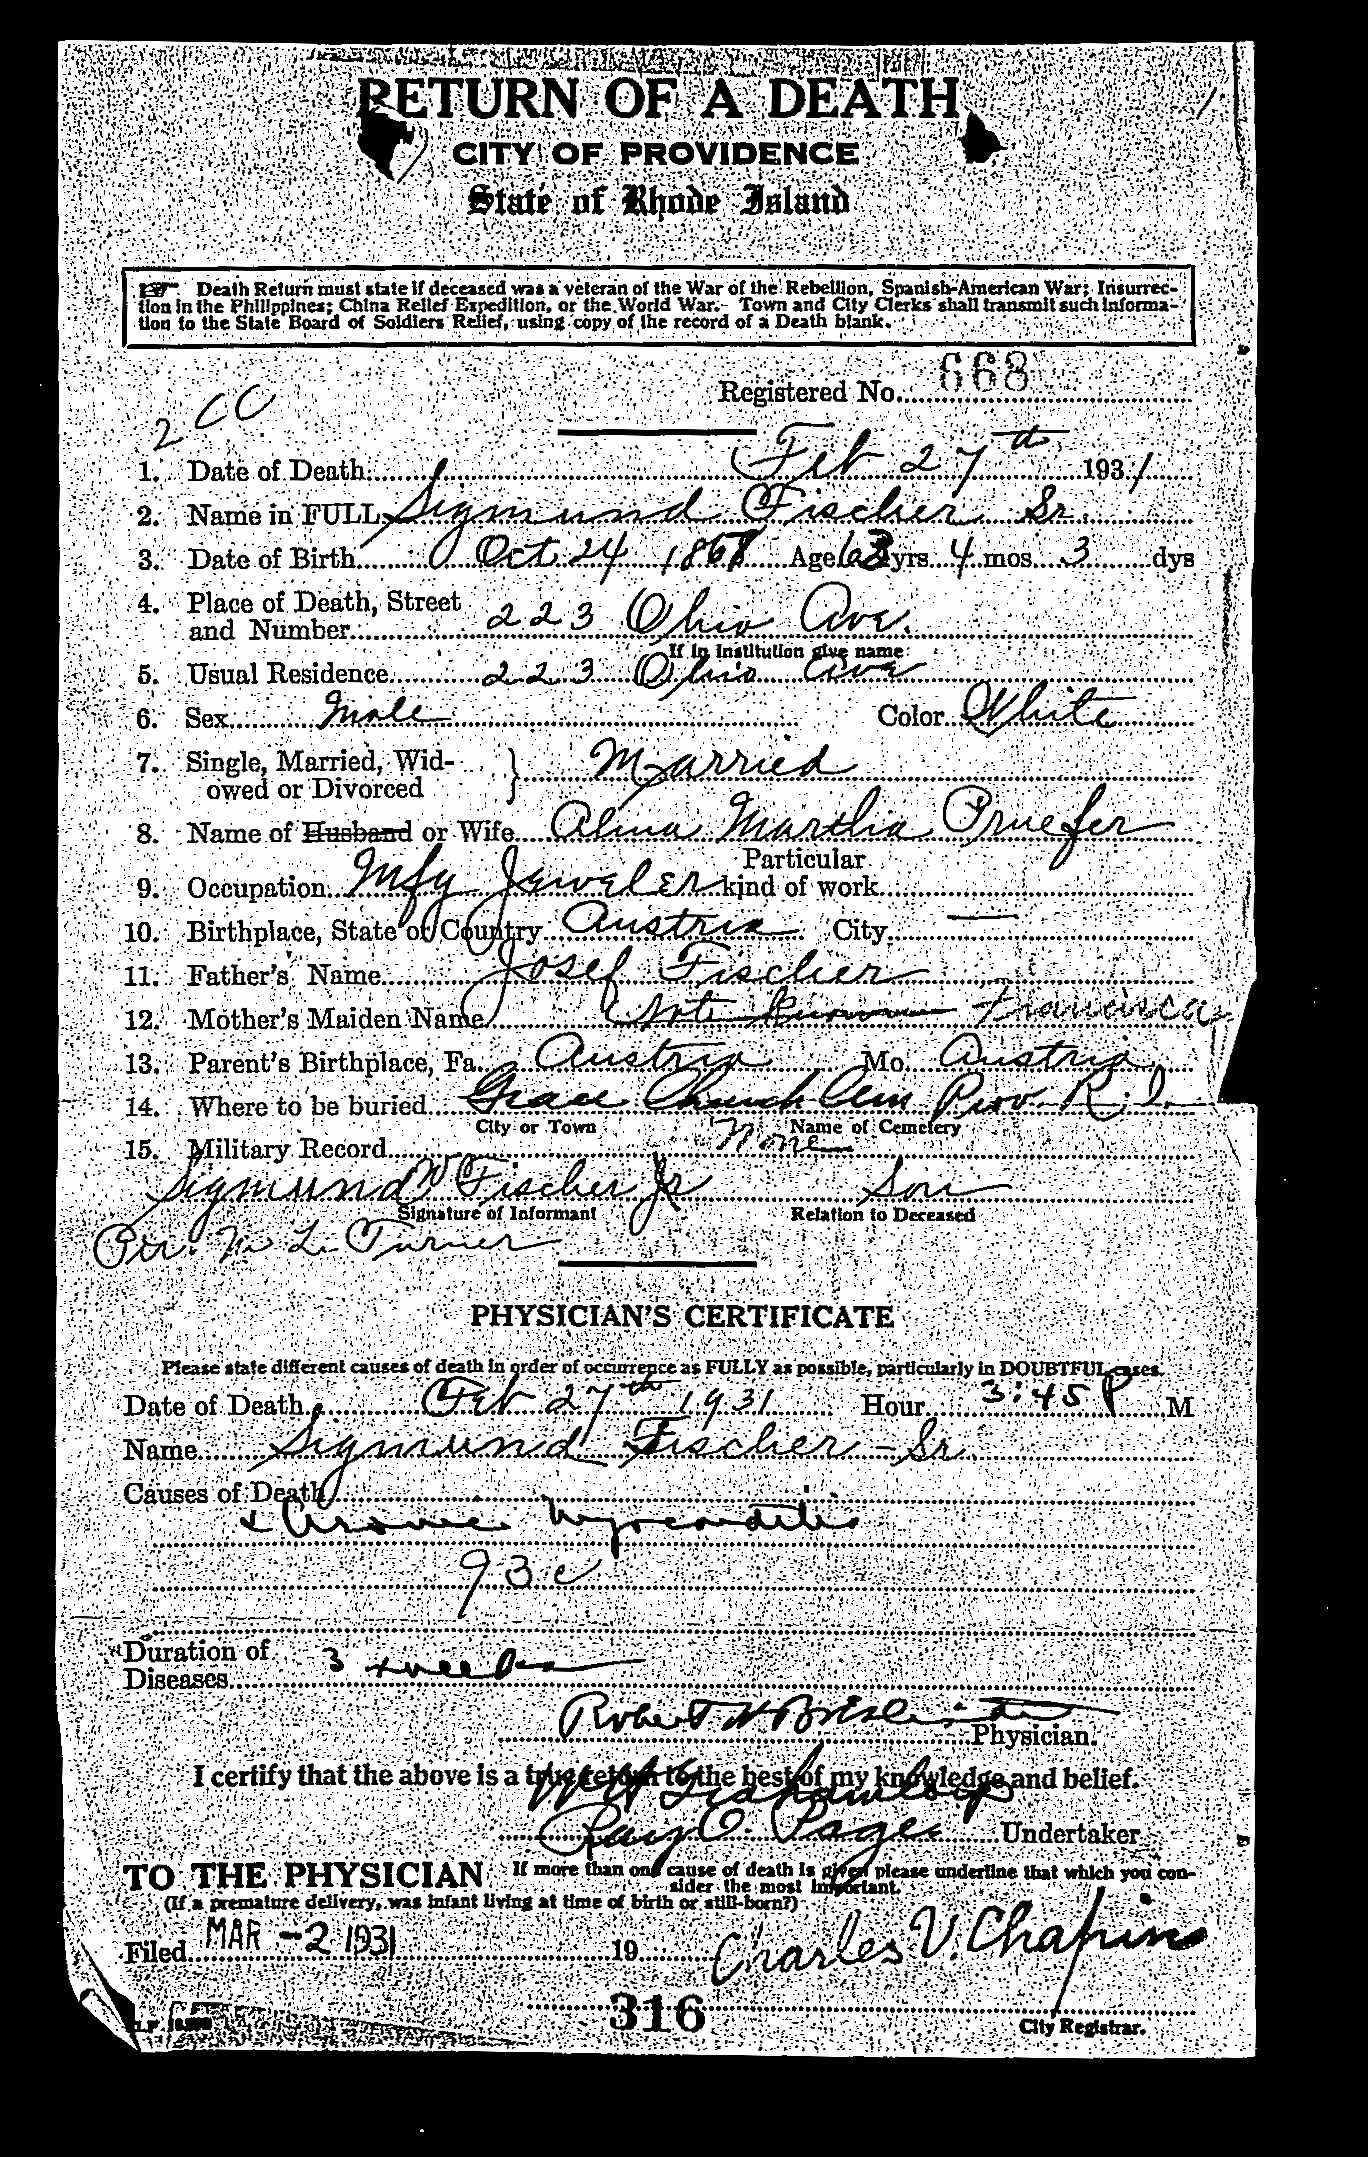 RETURN OF A DEATH
CITY OF PROVIDENCE
State of Rhode Island
Death Return must state if deceased was a veteran of the War of the Rebellion, Spanish-American War; Insurrec-
tion in the Philippines; China Relief Expedition, or the World War. Town and City Clerks shall transmit such informa-
tion to the State Board of Soldiers Relief, using copy of the record of a Death blank.
Registered No. 668
2 CC
1. Date of Death: Feb 27th 1931
2. Name in FULL Sigmund Fischer Sr.
3. Date of Birth Oct 24 Age yrs. 4 mos. 3 dys
4. Place of Death, Street
and Number 223 Ohio Ave.
If in Institution give name
5. Usual Residence 223 Ohio Ave
6. Sex Male Color White
7. Single, Married, Wid-
owed or Divorced } Married
8. Name of Husband or Wife Alma Martha Pruefer
9. Occupation Mfg Jeweler Particular
kind of work
10. Birthplace, State or Country Austria City —
11. Father's Name Josef Fischer
12. Mother's Maiden Name Not Francisca
13. Parent's Birthplace, Fa. Austria Mo. Austria
14. Where to be buried Grace Church Cem Prov. R.I.
City or Town Name of Cemetery
15. Military Record None
Sigmund W Fischer Jr Son
Signature of Informant Relation to Deceased
Per. M L. Turner
PHYSICIAN'S CERTIFICATE
Please state different causes of death in order of occurrence as FULLY as possible, particularly in DOUBTFUL cases.
Date of Death Feb 27th 1931 Hour 3:45 P M
Name Sigmund Fischer - Sr.
Causes of Death
Chronic Myocarditis
93c
Duration of
Diseases 3 weeks
Robert H
Physician.
I certify that the above is a true return to the best of my knowledge and belief.
W H Graham
Ray O. Page Undertaker
TO THE PHYSICIAN If more than one cause of death is given please underline that which you con-
sider the most important.
(If a premature delivery, was infant living at time of birth or still-born?)
Filed MAR -2 1931 19 Charles V. Chapin
316
City Registrar.